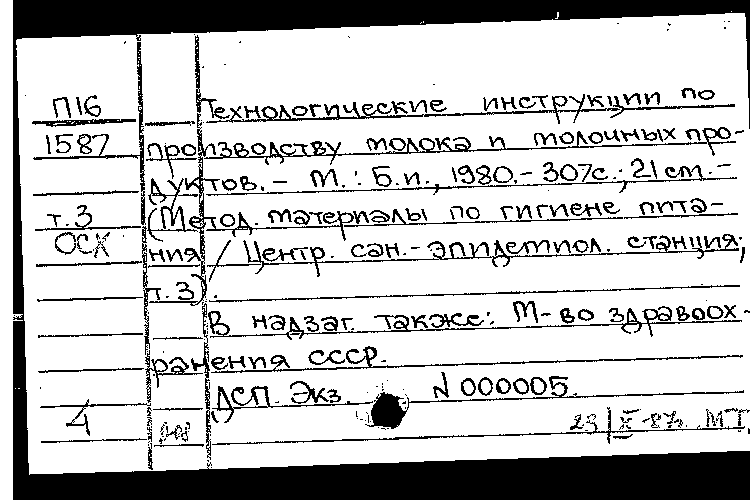 П16 Технологические инструкции по
1587 производству молока и молочных про-
дуктов. - М.: Б.и., 1980. - 307с.; 21 cm. -
т.3 (Метод. материалы по гигиене пита-
ОСХ ния / Центр. сан.-эпидемиол. станция;
т.3).
В надзаг. также: М-во здравоох-
ранения СССР.
ДСП. Экз. N 000005.
4 23/X-87г. МТ.